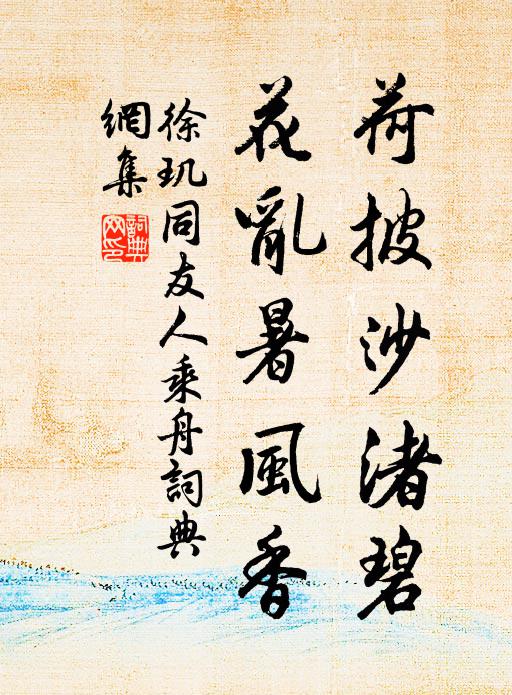 荷披沙渚碧
花亂暑風香
徐玑同友人乘舟詞典
網集
詞典
网印